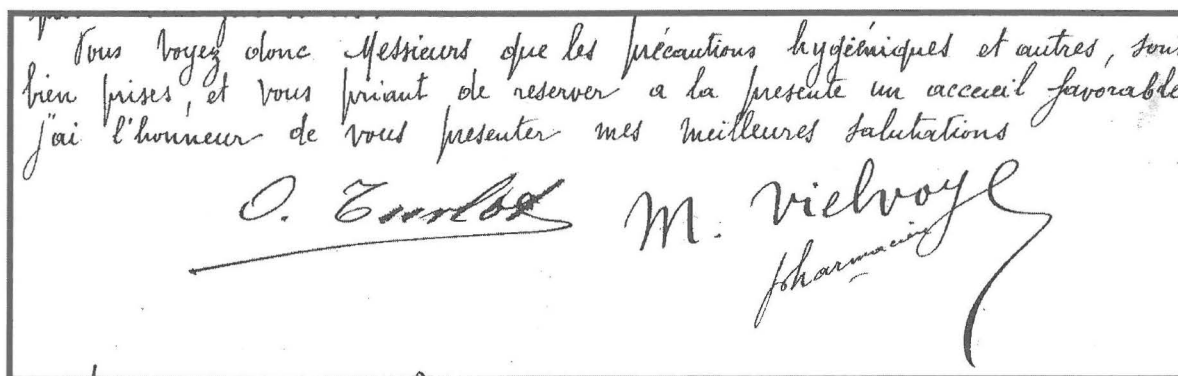 Vous voyez donc Messieurs que les précautions hygiéniques et autres, sont
bien prises, et vous priant de reserver a la presente un accueil favorable
j'ai l'honneur de vous presenter mes meilleures salutations
O. Turlot M. Vielvoye
pharmacien